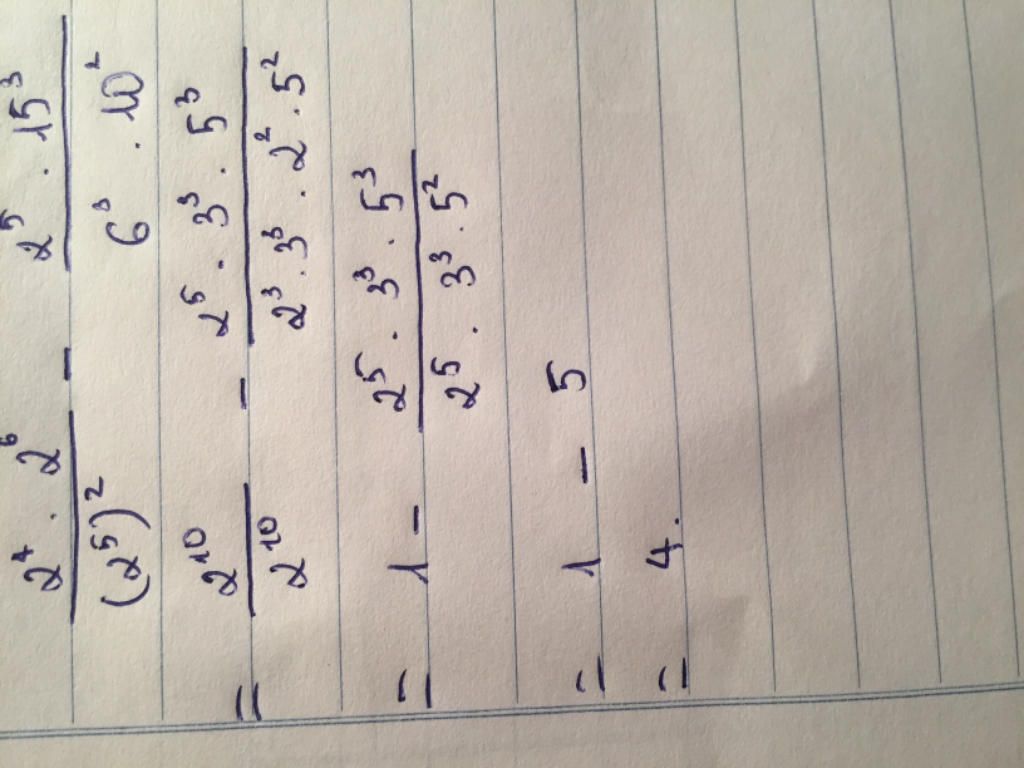 2⁴ . 2⁶ / (2⁵)² - 2⁵ . 15³ / 6³ . 10²
= 2¹⁰ / 2¹⁰ - 2⁵ . 3³ . 5³ / 2³ . 3³ . 2² . 5²
= 1 - 2⁵ . 3³ . 5³ / 2⁵ . 3³ . 5²
= 1 - 5
= 4.